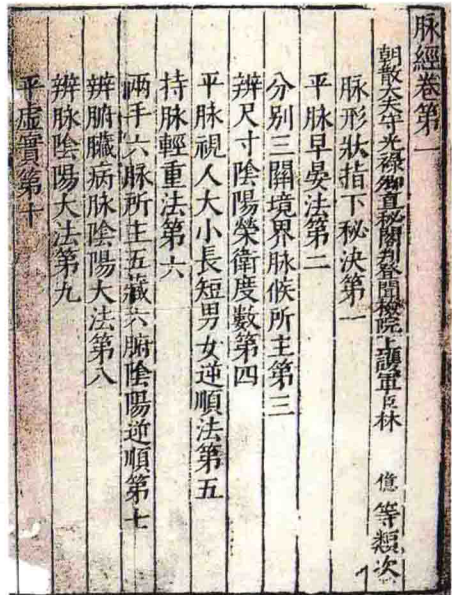 脉經卷第一
朝散大夫守光禄卿直秘閣判登聞檢院上護軍臣林億等類次
脉形狀指下秘决第一
平脉早晏法第二
分别三關境界脉候所主第三
辨尺寸陰陽榮衛度數第四
平脉視人大小長短男女逆順法第五
持脉輕重法第六
兩手六脉所主五藏六腑陰陽逆順第七
辨腑臓病脉陰陽大法第八
辨脉陰陽大法第九
平虚實第十